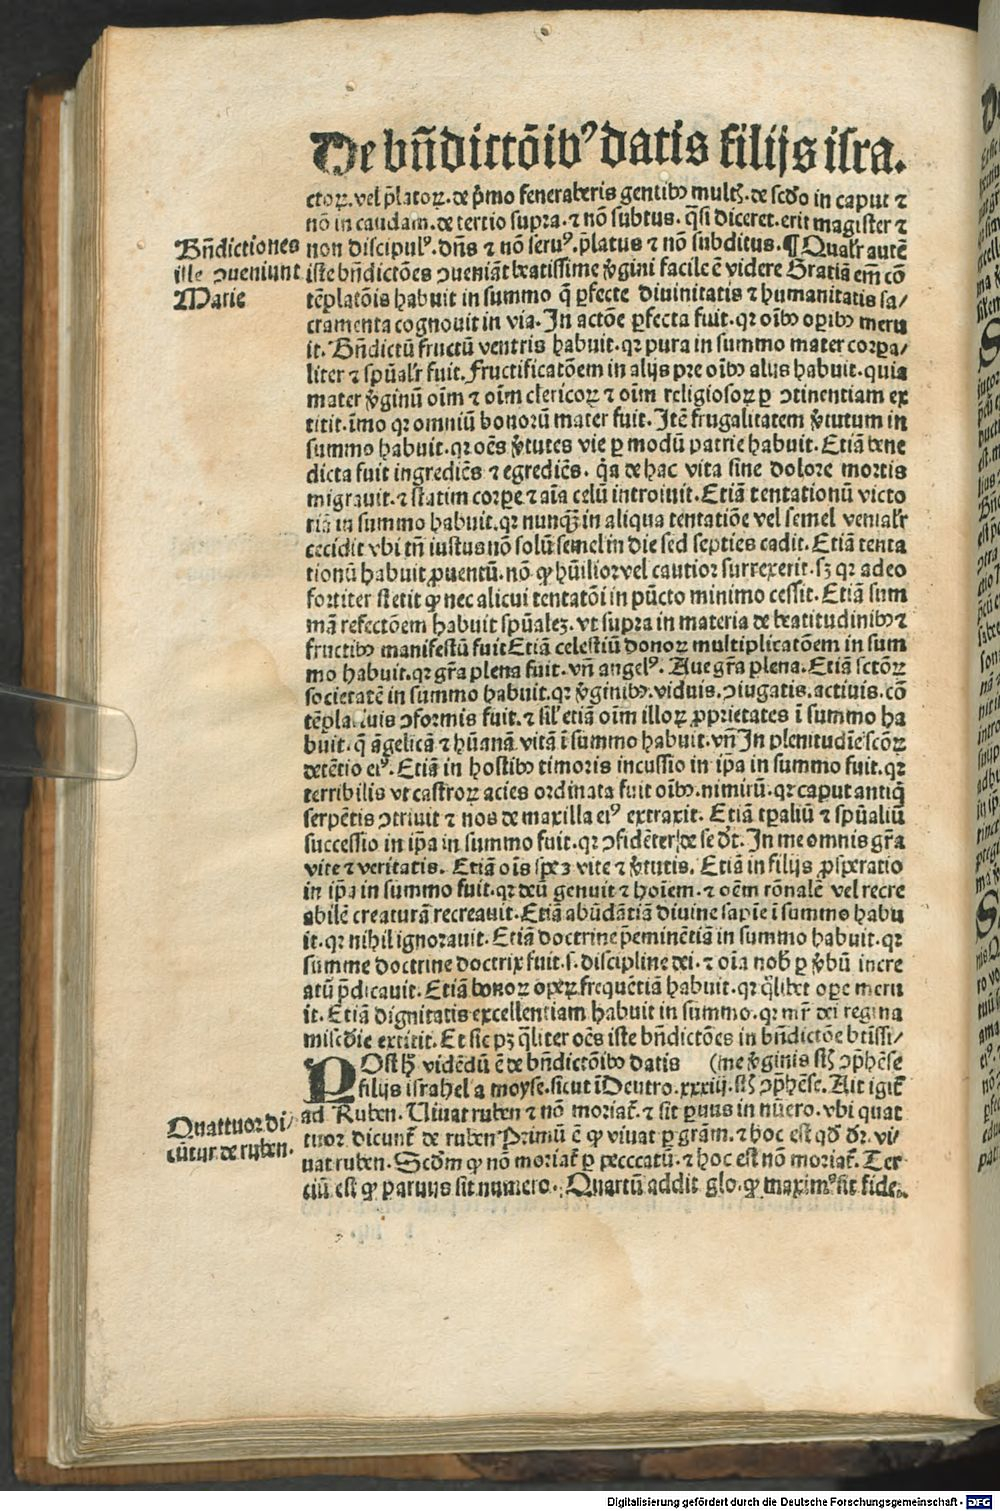 De bñdictōibꝰ datis filijs isra.
ctoꝝ. vel p̄latoꝝ. de p̄mo feneraberis gentibꝫ multꝭ. de scd̄o in caput ⁊
nō in caudam. de tertio supra. ⁊ nō subtus. q̄si diceret. erit magister ⁊
Bñdictiones
ille ꝯueniunt
Marie
non discipulꝰ. dn̄s ⁊ nō seruꝰ. p̄latus ⁊ nō subditus. ¶ Qualr̄ autē
iste bñdictōes ꝯueniāt beatissime v̓gini facile ē videre Gratiā em̄ cō
tēplatōis habuit in summo q̄ ꝑfecte diuinitatis ⁊ humanitatis sa/
cramenta cognouit in via. In actōe ꝑfecta fuit. qꝛ oībꝫ oꝑibꝫ meru
it. Bñdictū fructū ventris habuit. qꝛ pura in summo mater corpa/
liter ⁊ spūalr̄ fuit. Fructificatōem in alijs pre oībꝫ alijs habuit. quia
mater v̓ginū oīm ⁊ oīm clericoꝝ ⁊ oīm religiosoꝝ ꝑ ꝯtinentiam ex
titit. īmo qꝛ omniū bonorū mater fuit. Itē frugalitatem v̓tutum in
summo habuit. qꝛ oēs v̓tutes vie ꝑ modū patrie habuit. Etiā bene
dicta fuit ingrediēs ⁊ egrediēs. q̓a de hac vita sine dolore mortis
migrauit. ⁊ statim corꝑe ⁊ aīa celū introiuit. Etiā tentationū victo
riā in summo habuit. qꝛ nunqꝫ in aliqua tentatiōe vel semel venialr̄
cecidit vbi tn̄ iustus nō solū semel in die sed septies cadit. Etiā tenta
tionū habuit ꝓuentū. nō ꝙ hūilior vel cautior surrexerit. sꝫ qꝛ adeo
fortiter stetit ꝙ nec alicui tentatōi in pūcto minimo cessit. Etiā sum
mā refectōem habuit spūaleꝫ. vt supra in materia de beatitudinibꝫ ⁊
fructibꝫ manifestū fuit Etiā celestiū donoꝝ multiplicatōem in sum
mo habuit. qꝛ gr̄a plena fuit. vn̄ angelꝰ. Aue gr̄a plena. Etiā sctōꝝ
societatē in summo habuit. qꝛ v̓ginibꝫ. viduis. ꝯiugatis. actiuis. cō
tēpla uis ꝯformis fuit. ⁊ sil̄ etiā oīm illoꝝ ꝓprietates ī summo ha
buit. q̄ āgelicā ⁊ hūanā vitā ī summo habuit. vn̄ In plenitudīe scōꝝ
detētio eiꝰ. Etiā in hostibꝫ timoris incussio in ip̄a in summo fuit. qꝛ
terribilis vt castroꝝ acies ordinata fuit oībꝫ. nimirū. qꝛ caput antiq̄
serpētis ꝯtriuit ⁊ nos de maxilla eiꝰ extraxit. Etiā tꝑaliū ⁊ spūaliū
successio in ip̄a in summo fuit. qꝛ ꝯfidēter de se dr̄t. In me omnis gr̄a
vite ⁊ veritatis. Etiā oīs spes vite ⁊ v̓tutis. Etiā in filijs ꝓsꝑatio
in ip̄a in summo fuit. qꝛ deū genuit ⁊ hoīem. ⁊ oēm rōnalē vel recre
abilē creaturā recreauit. Etiā abūdātiā diuine sapiē ī summo habu
it. qꝛ nihil ignorauit. Etiā doctrine p̄eminētiā in summo habuit. qꝛ
summe doctrine doctrix fuit. s. discipline dei. ⁊ oīa nob̄ ꝑ v̓bū incre
atū p̄dicauit. Etiā bonoꝝ oꝑeꝝ frequētiā habuit. qꝛ q̄libet oꝑe meru
it. Etiā dignitatis excellentiam habuit in sūmo. qꝛ mr̄ dei regina
misc̄die extitit. Et sic pꝫ q̄liter oēs iste bñdictōes in bñdictōe btīssi/
POst h̄ vidēdū ē de bñdictōibꝫ datis (me v̓ginis sꝫ ꝯp̄hēse
filijs israhel a moyse. sicut ī Deutro. xxxiij. sꝫ ꝯp̄hēse. Ait igit̄
Quattuor di/
cūtur de ruben.
ad Ruben. Viuat ruben ⁊ nō moriat̄. ⁊ sit ꝑuus in nūero. vbi quat
tuor dicunt̄ de ruben Primū ē ꝙ viuat ꝑ grām. ⁊ hoc est qd̄ dr̄. vi/
uat ruben. Scd̄m ꝙ nō moriat̄ ꝑ pecccatū. ⁊ hoc est nō moriat̄. Ter
ciū est ꝙ paruus sit numero. Quartū addit glo. ꝙ maximꝰ sit fide.
Digitalisierung gefördert durch die Deutsche Forschungsgemeinschaft - DFG